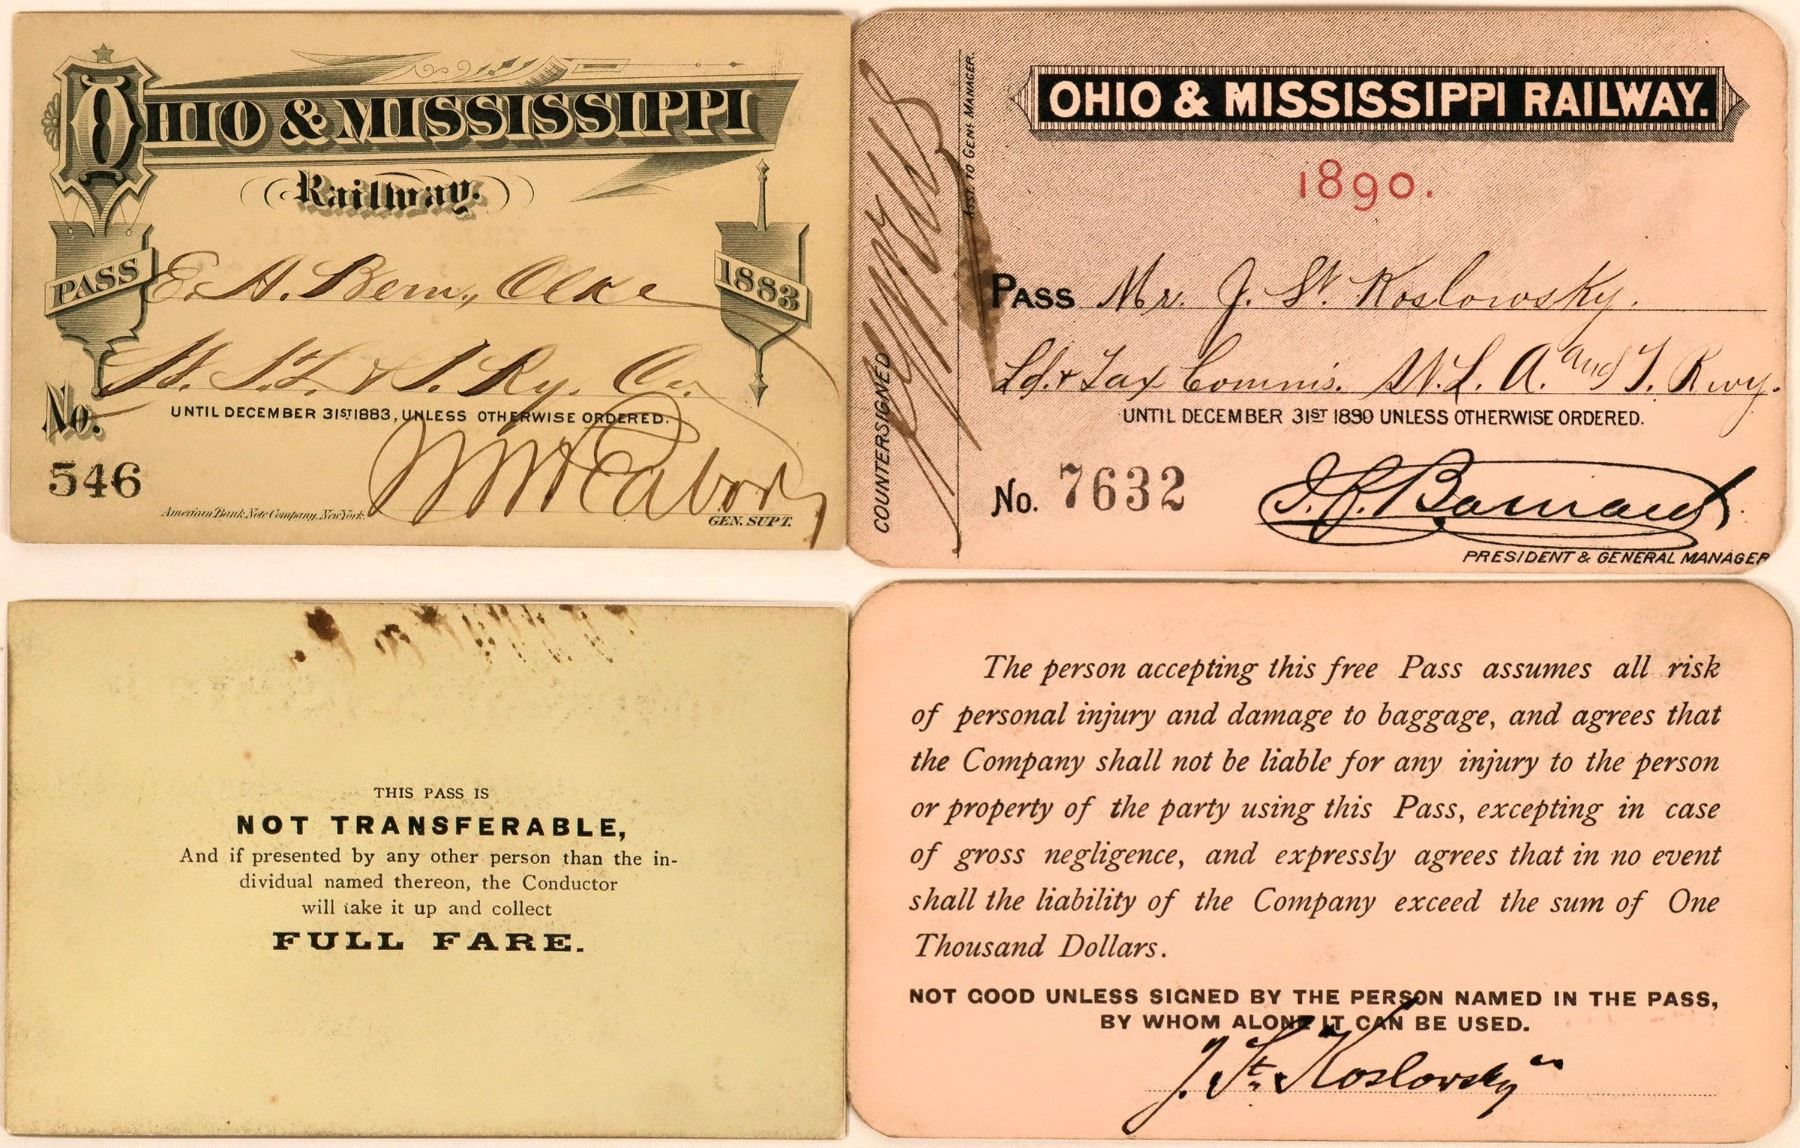 OHIO & MISSISSIPPI
Railway.
PASS E. A. Bem, 1883
St. L. & S. Ry. Co.
No. UNTIL DECEMBER 31ST 1883, UNLESS OTHERWISE ORDERED.
546
American Bank Note Company, New York.
GEN. SUPT.
THIS PASS IS
NOT TRANSFERABLE,
And if presented by any other person than the in-
dividual named thereon, the Conductor
will take it up and collect
FULL FARE.
COUNTERSIGNED
ASST. TO GENL MANAGER.
OHIO & MISSISSIPPI RAILWAY.
1890.
PASS Mr. J. St. Koslowsky.
Ld. & Tax Commis. St. L. A. and T. Rwy.
UNTIL DECEMBER 31ST 1890 UNLESS OTHERWISE ORDERED.
No. 7632 J. F. Barnard
PRESIDENT & GENERAL MANAGER
The person accepting this free Pass assumes all risk
of personal injury and damage to baggage, and agrees that
the Company shall not be liable for any injury to the person
or property of the party using this Pass, excepting in case
of gross negligence, and expressly agrees that in no event
shall the liability of the Company exceed the sum of One
Thousand Dollars.
NOT GOOD UNLESS SIGNED BY THE PERSON NAMED IN THE PASS,
BY WHOM ALONE IT CAN BE USED.
J. St. Koslowsky